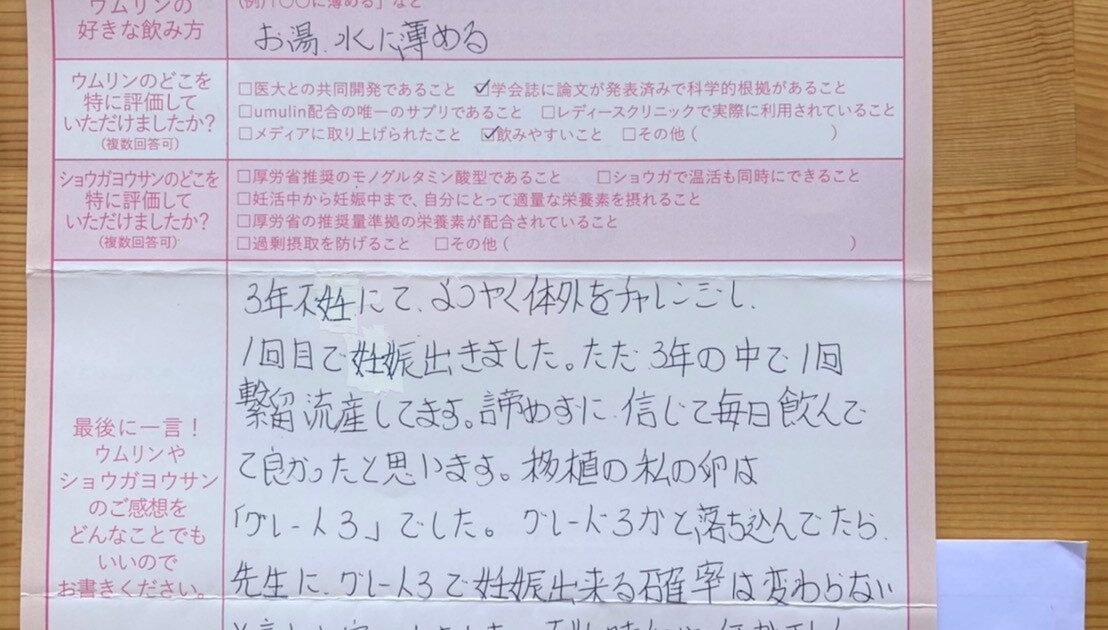 ウムリンの
好きな飲み方
(例)「○○に薄める」など
お湯、水に薄める
ウムリンのどこを
特に評価して
いただけましたか?
(複数回答可)
□医大との共同開発であること ☑学会誌に論文が発表済みで科学的根拠があること
□umulin配合の唯一のサプリであること □レディースクリニックで実際に利用されていること
□メディアに取り上げられたこと ☑飲みやすいこと □その他( )
ショウガヨウサンのどこを
特に評価して
いただけましたか?
(複数回答可)
□厚労省推奨のモノグルタミン酸型であること □ショウガで温活も同時にできること
□妊活中から妊娠中まで、自分にとって適量な栄養素を摂れること
□厚労省の推奨量準拠の栄養素が配合されていること
□過剰摂取を防げること □その他( )
最後に一言!
ウムリンや
ショウガヨウサン
のご感想を
どんなことでも
いいので
お書きください。
3年不妊にて、ようやく体外をチャレンジし、
1回目で妊娠出きました。ただ3年の中で1回
繋留流産してます。諦めずに信じて毎日飲んで
て良かったと思います。移植の私の卵は
「グレード3」でした。グレード3かと落ち込んでたら、
先生に、グレード3で妊娠出来る確率は変わらない